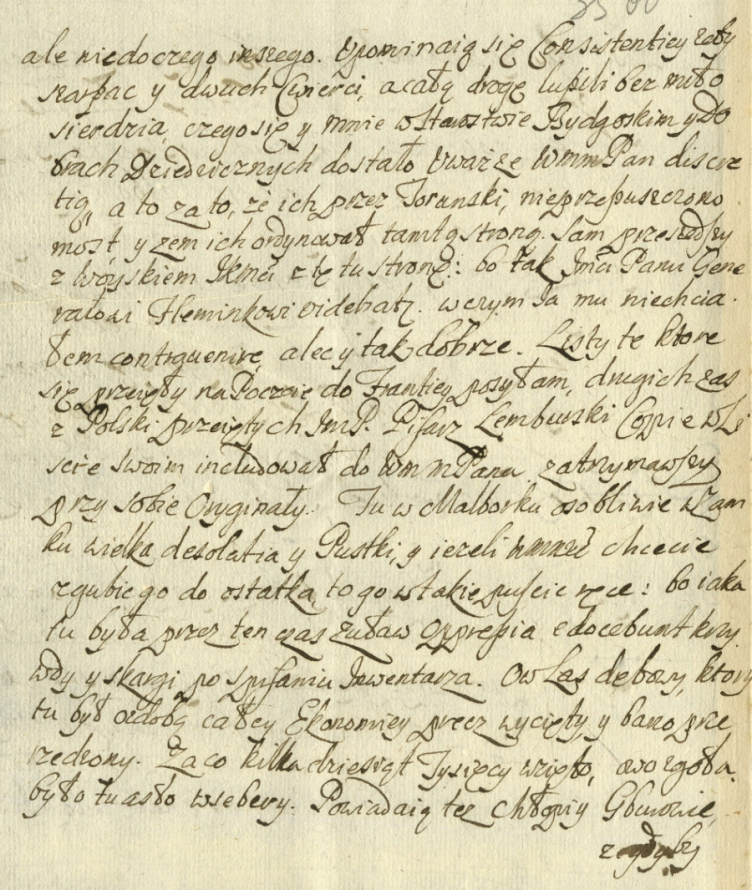 ale niedoczego inszego. Upominaią się Consistentiey zeby
szarpac y dwuch Cwierci, a całą drogę lupili bez miło
sierdzia, czego się y mnie w Starostwie Bydgoskim y Do
brach Dziedzicznych dostało Uważ ze WmmPan discre
tią, a to za to, że ich przez Torunski, nieprzepuszczono
most, y zem ich ordynował tamtą stroną. Sam przeszedszy
z woyskiem IKMci z tę tu stronę: bo tak Jmci Panu Gene
rałowi Fleminkowi videbatr. w czym Ja mu niechcia
łem contravenire, alec y tak dobrze. Listy te ktore
się przeięły na Poczcie do Frantiey posyłam, drugich zas
z Polski przeiętych ImP. Pisarz Lemburski Coppie w Li
scie swoim includował do WmmPana zatrzymawszy
przy sobie Oryginały. Tu w Malborku osobliwie w Zam
ku wielka desolatia y Pustki, y iezeli chcecie
zgubic go do ostatka, to go w takie puscie ręce: bo iaka
tu była przez ten czas Zuław Oppressia edocebunt krzy
wdy y skargi po spisaniu Inwentarza. Ow Las debowy, ktory
tu był ozdobą całey Ekonomiey precz wycięty, y bano prze
rzedzony. Za co kilkadziesiąt Tysięcy wzięto, owo zgoła
było tu asło wsebery. Powiadaią tez chłopi y Gburowie,
z gdyby